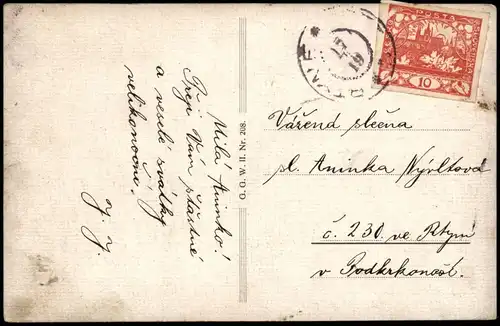 Milá Aninko!
Přeji Vám šťastné
a veselé svátky
velikonoční.
J. J.
O. G. W. II. Nr. 208.
POŠTA
10
19
Vážená slečna
sl. Aninka Nývltová
č. 230. ve Rtyni
v Podkrkonoší.